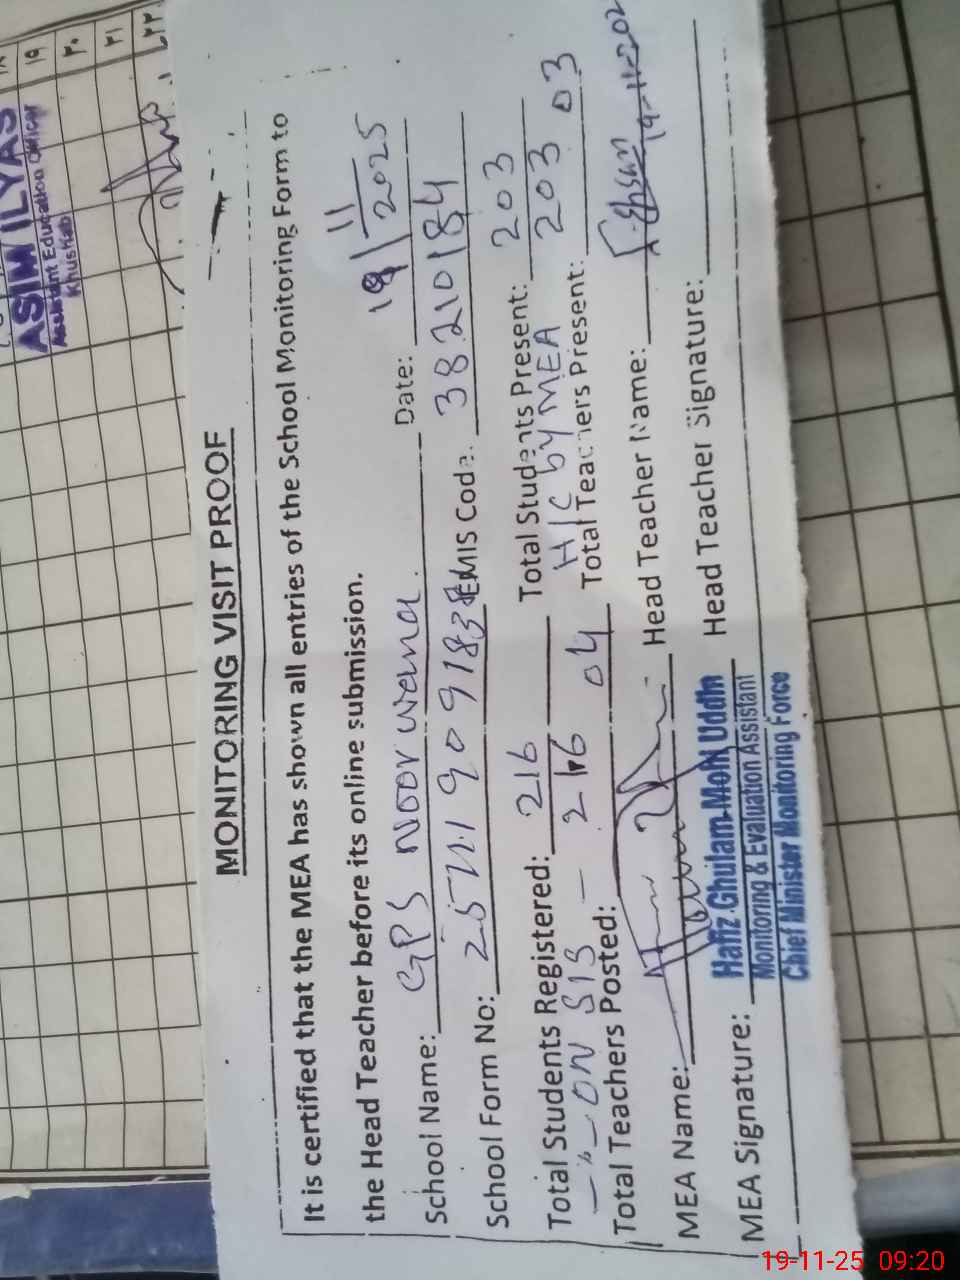 ۱۹
۲۰
۲۱
۲۲
ASIM ILYAS
Assistant Education Officer
Khushab
MONITORING VISIT PROOF
It is certified that the MEA has shown all entries of the School Monitoring Form to
the Head Teacher before its online submission.
School Name: GPS Noorwana. Date: 19/11/2025
School Form No: EMIS Code: 38210184
Total Students Registered: 216 Total Students Present: 203
-"- ON SIS - 216 H/C by MEA 203
Total Teachers Posted: 04 Total Teachers Present: 03
MEA Name: Head Teacher Name: Ehsan
19-11-202
MEA Signature: Head Teacher Signature:
Hafiz Ghulam Mohi Uddin
Monitoring & Evaluation Assistant
Chief Minister Monitoring Force
19-11-25 09:20